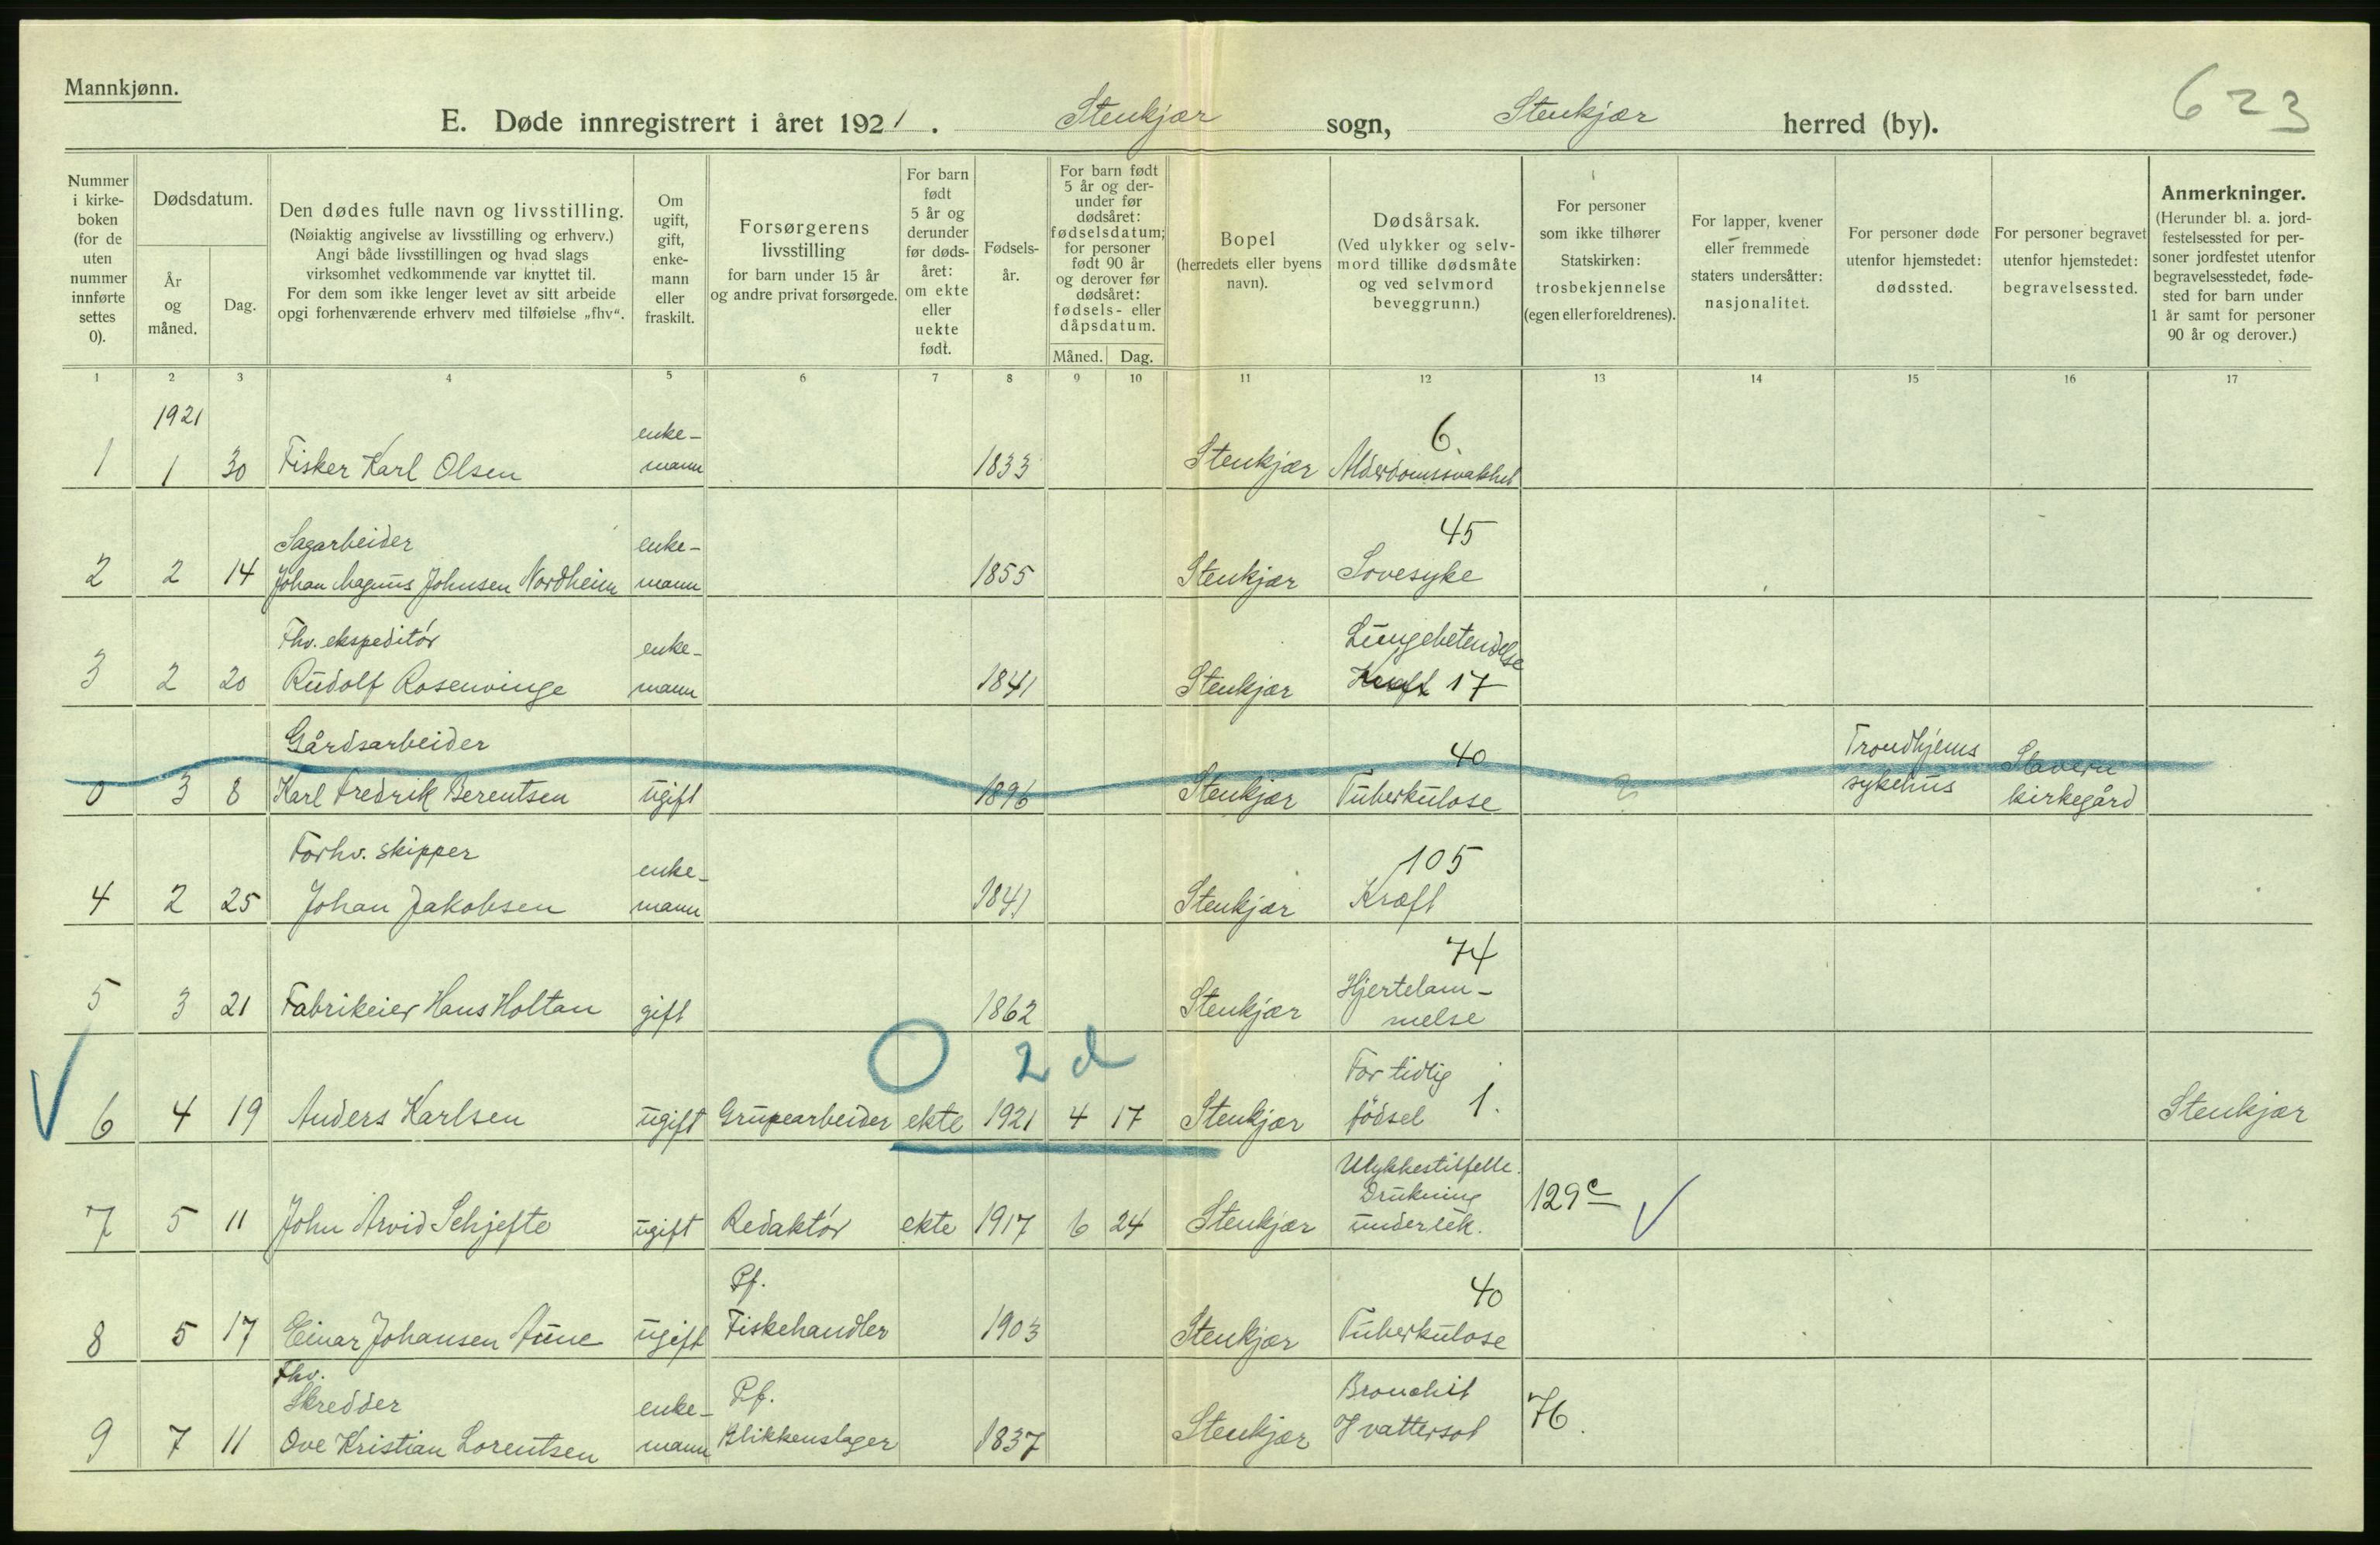 Mannkjønn.
623
E. Døde innregistrert i året 1921. Stenkjær sogn, Stenkjær herred (by).
Nummer i kirke- boken (for de uten nummer innførte settes 0).
Dødsdatum.
År og måned.
Dag.
Den dødes fulle navn og livsstilling.
(Nøiaktig angivelse av livsstilling og erhverv.)
Angi både livsstillingen og hvad slags
virksomhet vedkommende var knyttet til.
For dem som ikke lenger levet av sitt arbeide
opgi forhenværende erhverv med tilføielse „fhv“.
Om ugift, gift, enke- mann eller fraskilt.
Forsørgerens
livsstilling
for barn under 15 år
og andre privat forsørgede.
For barn født 5 år og derunder før døds- året: om ekte eller uekte født.
Fødsels- år.
For barn født 5 år og der- under før dødsåret: fødselsdatum; for personer født 90 år og derover før dødsåret: fødsels- eller dåpsdatum.
Måned. Dag.
Bopel
(herredets eller byens navn).
Dødsårsak.
(Ved ulykker og selv- mord tillike dødsmåte og ved selvmord beveggrunn.)
For personer som ikke tilhører Statskirken: trosbekjennelse (egen eller foreldrenes).
For lapper, kvener eller fremmede staters undersåtter: nasjonalitet.
For personer døde utenfor hjemstedet: dødssted.
For personer begravet utenfor hjemstedet: begravelsessted.
Anmerkninger.
(Herunder bl. a. jord- festelsessted for per- soner jordfestet utenfor begravelsesstedet, føde- sted for barn under 1 år samt for personer 90 år og derover.)
1 2 3 4 5 6 7 8 9 10 11 12 13 14 15 16 17
1921
enke- 6.
1 1 30 Fisker Karl Olsen mann 1833 Stenkjær Alderdomssvakhet
Sagarbeider enke- 45
2 2 14 Johan Magnus Johnsen Nordheim mann 1855 Stenkjær Sovesyke
Fhv. ekspeditør enke- Lungebetendelse
3 2 20 Rudolf Rosenvinge mann 1841 Stenkjær 17
Gårdsarbeider 40 Trondhjems Stavern
0 3 8 Karl Fredrik Berentsen ugift 1896 Stenkjær Tuberkulose sykehus kirkegård
Forhv. skipper enke- 105
4 2 25 Johan Jakobsen mann 1841 Stenkjær Kræft
74
5 3 21 Fabrikeier Hans Holtan gift 1862 Stenkjær Hjertelam-
melse
2 d
For tidlig
6 4 19 Anders Karlsen ugift Grupearbeider ekte 1921 4 17 Stenkjær fødsel 1. Stenkjær
Ulykkestilfelle.
Drukning 129c
7 5 11 John Arvid Schjefte ugift Redaktør ekte 1917 6 24 Stenkjær under lek.
Pf. 40
8 5 17 Einar Johansen Aune ugift Fiskehandler 1903 Stenkjær Tuberkulose
Fhv.
Skredder enke- Pf. Bronchit 76.
9 7 11 Ove Kristian Lorentsen mann Blikkenslager 1837 Stenkjær Hvattersot